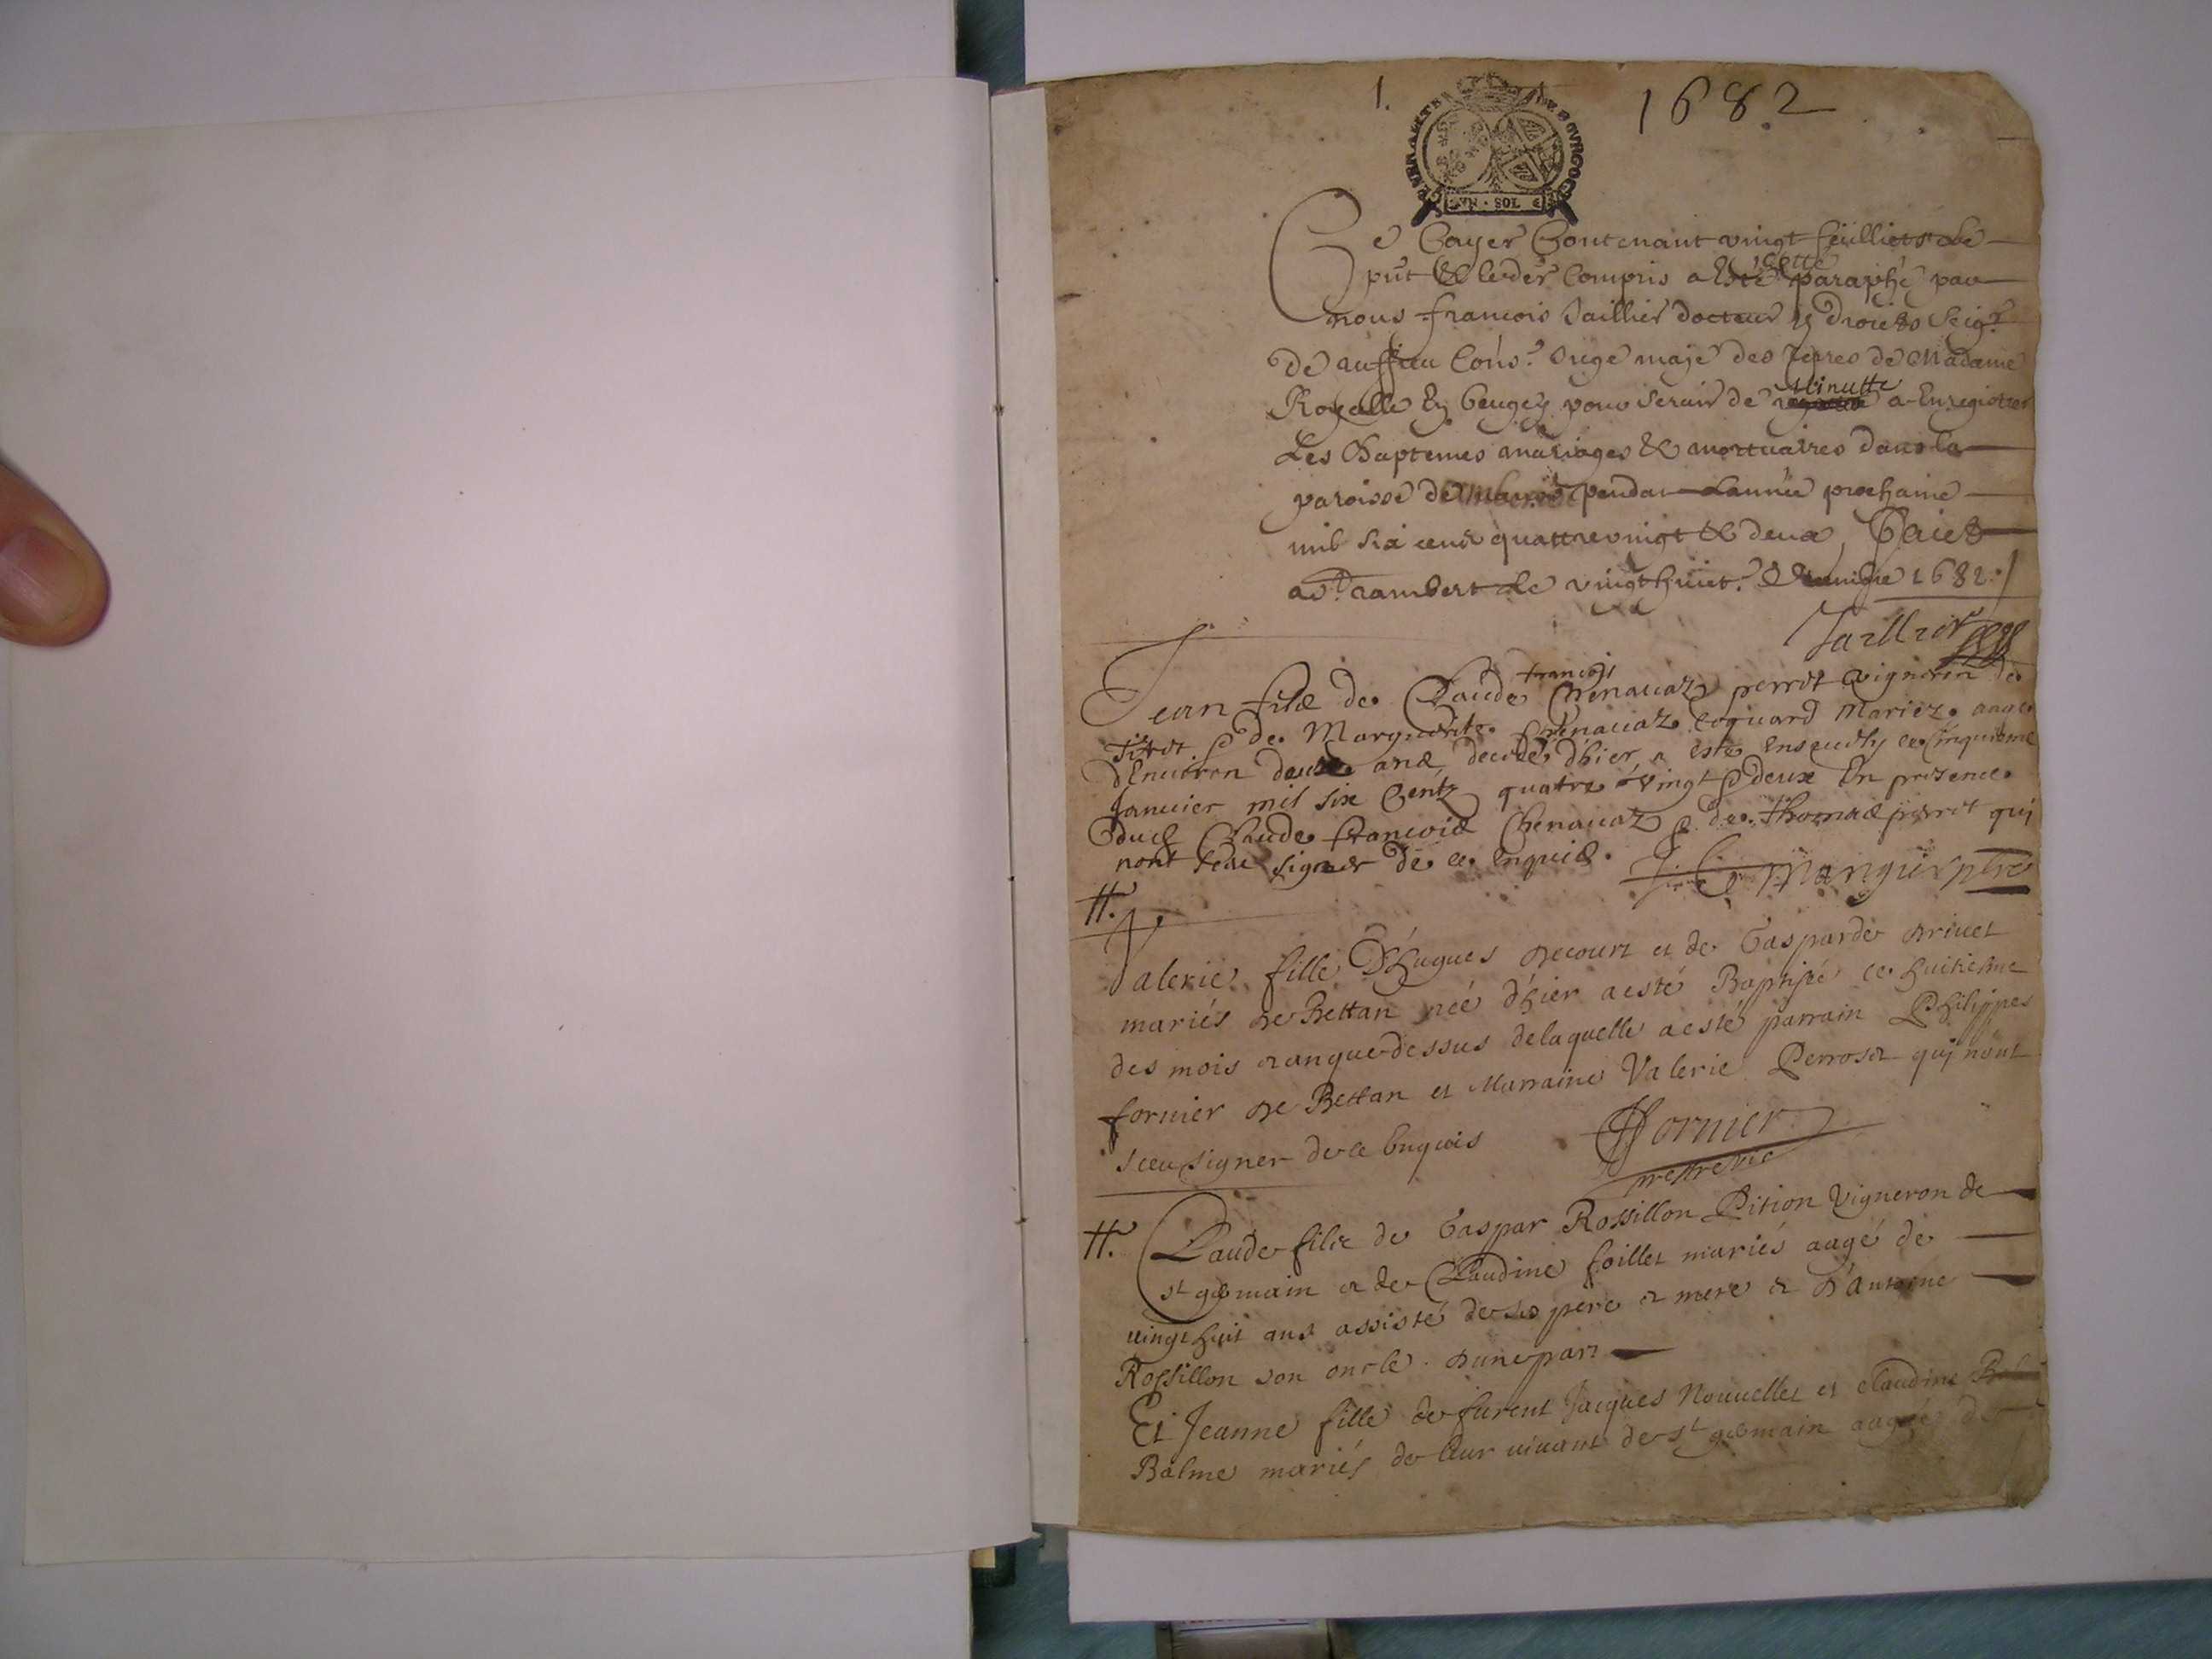 1.
1682
GENERALITE DE BOVRGOGNE
VN · SOL
Ce Cayer Contenant vingt feuilliets le
pnt & le der compris a Esté cotté paraphé par
nous francois Jaillier docteur es droicts Seigr
de auffieu Consr Juge maje des Terres de Madame
Royalle En beugey pour seruir de Minutte a Enregistrer
Les Baptemes mariages & mortuaires dans la
paroisse de pendat lannée prochaine
mil six cens quattrevingt & deux, faict
a St rambert le vingt huict 1681./
Jaillier
Jean filz de Claude francois Chenauaz perrot vigneron de
& de Marguerite Chenauaz coquard Mariez aagé
dEnuiron ans decedé dhier a esté Enseuely ce Cinquieme
Januier mil six Centz quatre vingt & deux En presence
dud Claude francois Chenauaz & de Thomas perrot qui
nont sceu signer de ce Enquis.
Manguis ptre
H.
Valerie fille D'Hugues Decourt et de Gasparde Driuet
mariés de Bettan née dhier a esté Baptisé ce huitiesme
des mois & an que dessus de laquelle a esté parrain Philippes
fornier de Bettan et Marraine Valerie Perroset quj nont
sceu signer de ce Enquis
Fornier
prestre vic
H. Claude filz de Gaspar Rossillon Pition Vigneron de
st germain & de Claudine foillet mariés aagé de
vingt huit ans assisté de ses père & mere & d'Antoine
Rossillon son oncle d'une part
Et Jeanne fille de furent Jacques Nouuellet et claudine
Balme mariés de leur uiuant de st germain aagée de